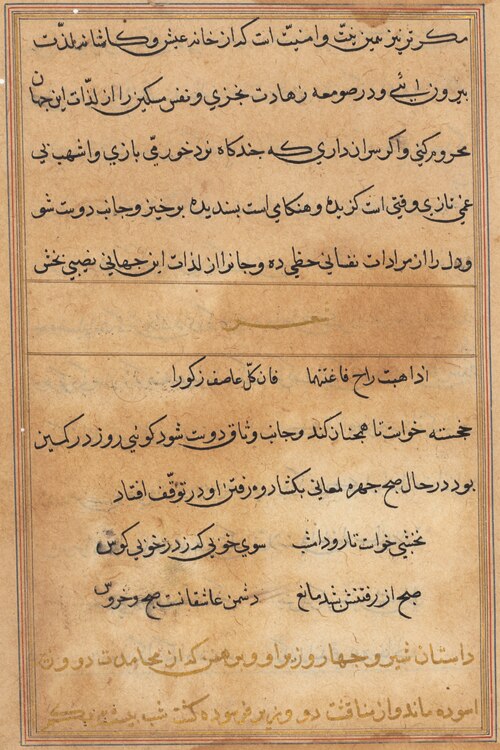 مکر ترا نیز عین نیت و امنیت است که از خانه عیش و کاشانه لذت
بیرون آئی و در صومعه زهادت بخزی و نفس مسکین را از لذات این جهان
محروم کنی و اکر سر ان داری که جندکاه نرد خورمی بازی و اشهب بی
غمی تازی وقتی است کزیده و هنکامی است بسندیده برخیز و جانب دوست شو
و دل را از مرادات نفسانی حظی ده و جانرا از لذات این جهانی نصیبی بخش
شعر
اذا هبت راح فاغتنمها فان کل عاصف زکورا
خجسته خواست تا همجنان کند و جانب وثاق دوست شود کوئی روز در کمین
بود در حال صبح جهره لمعانی بکشاد و رفتن او در توقف افتاد
نخشبی خواست تا رود امشب سوی خوبی که زد ز خوبی کوس
صبح از رفتنش شد مانع دشمن عاشقانست صبح و خروس
داستان شیر و جهار وزیر او و برهمن که از مجاملت دو وزیر
اسوده ماند و از مناقشت دو وزیر فرسوده کشت شب